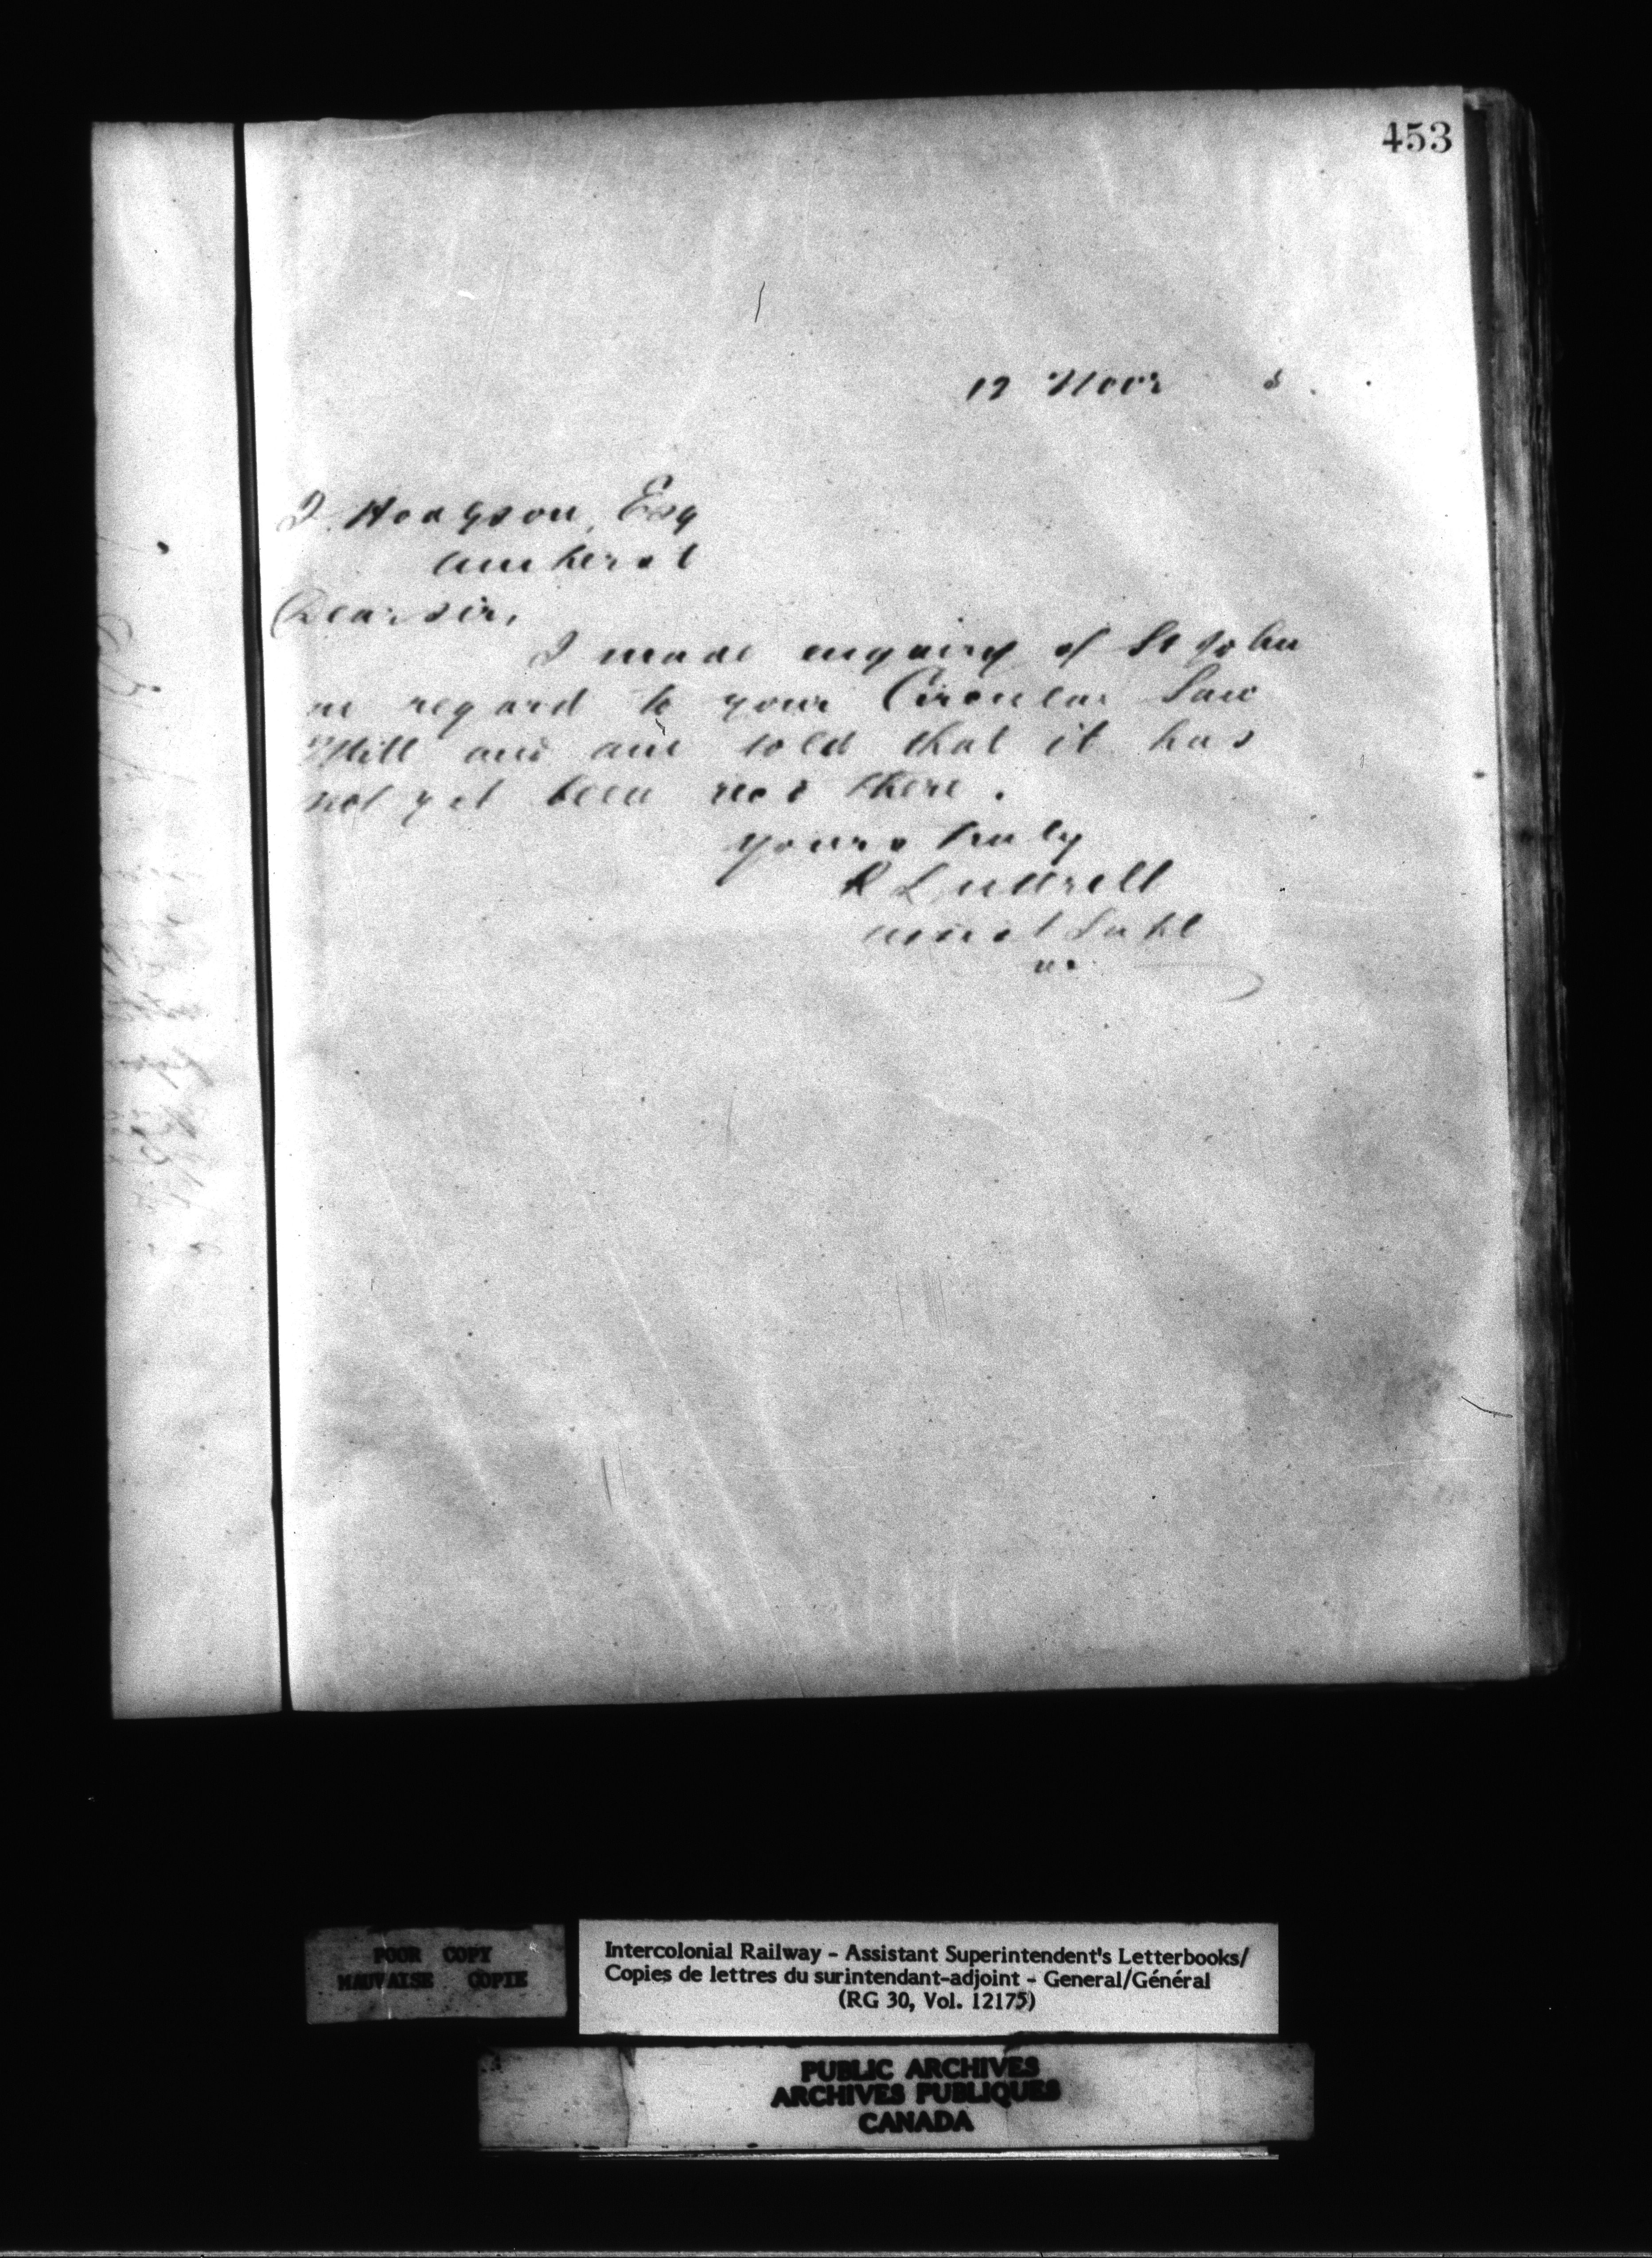 453
12 Novr 8.
J. Hodgson, Esq
Amherst
Dear sir,
I made enquiry of St John
in regard to your Circular Saw
Mill and am told that it has
not yet been recd there.
Yours truly
R Luttrell
assist Supt
POOR COPY
MAUVAISE COPIE
Intercolonial Railway - Assistant Superintendent's Letterbooks/
Copies de lettres du surintendant-adjoint - General/Général
(RG 30, Vol. 12175)
PUBLIC ARCHIVES
ARCHIVES PUBLIQUES
CANADA